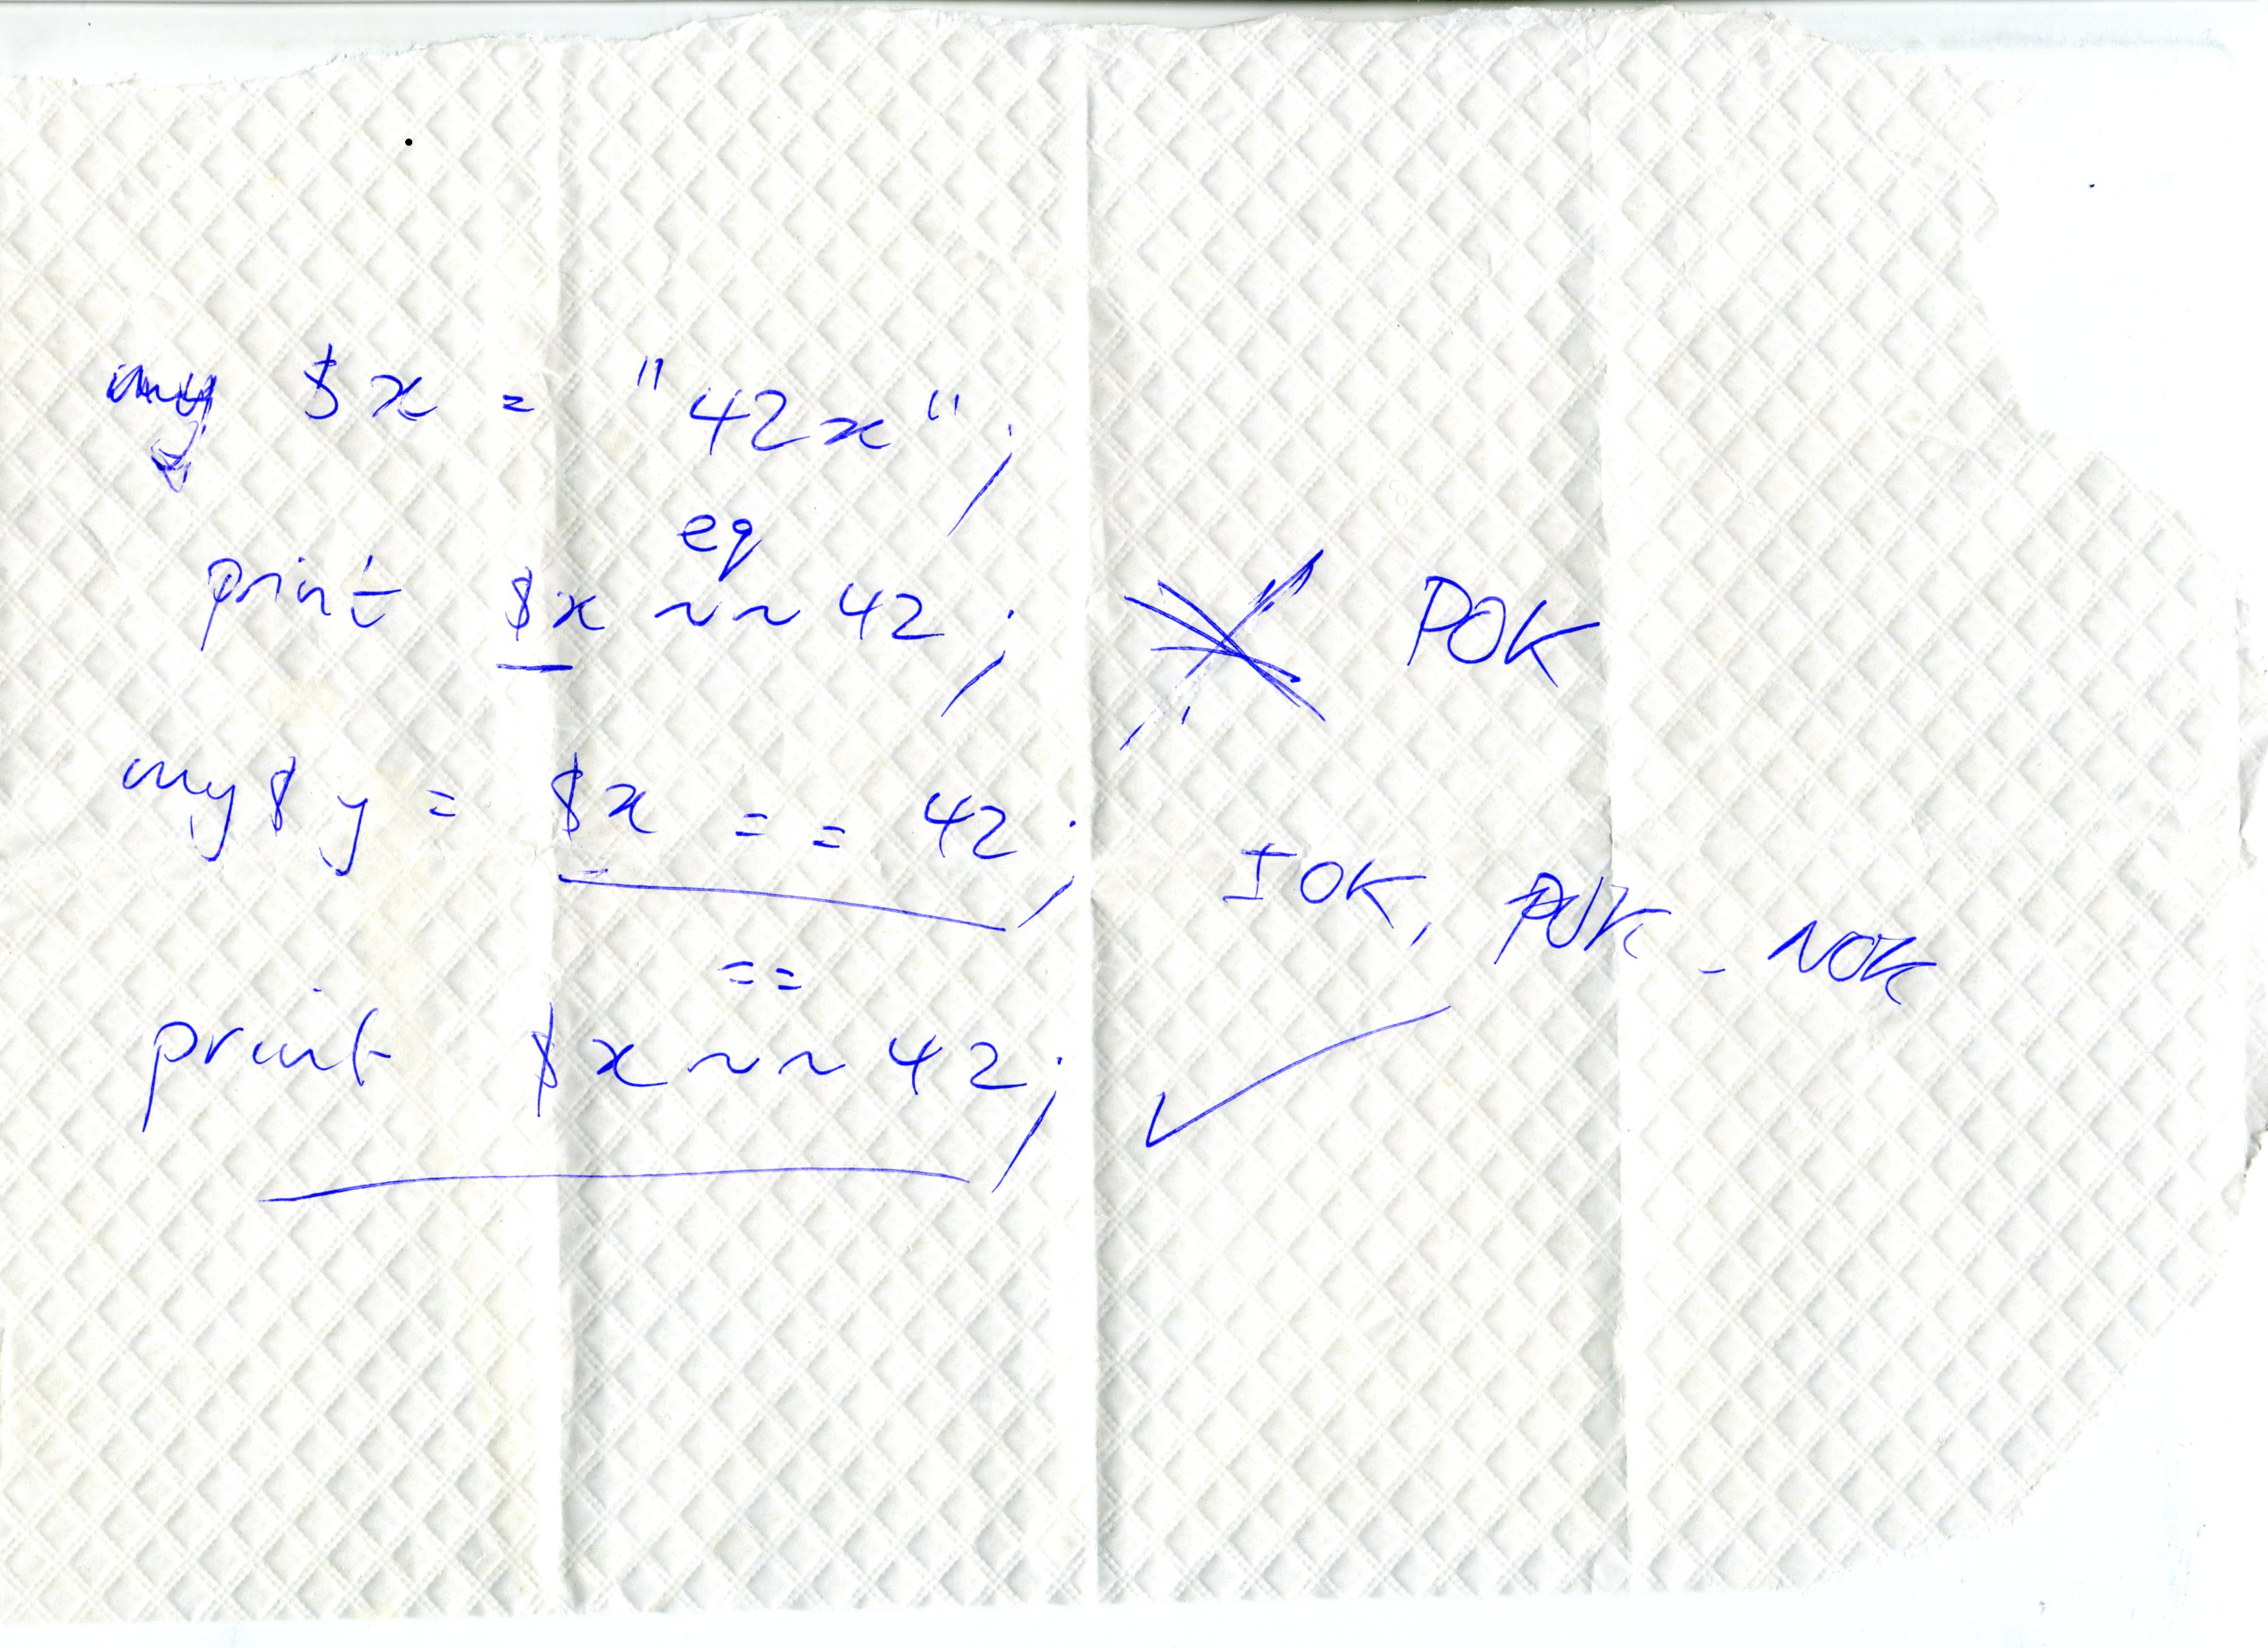 my $x = "42x";
eq
print $x ~~ 42; POK
my $y = $x == 42;
IOK, POK, NOK
==
print $x ~~ 42;